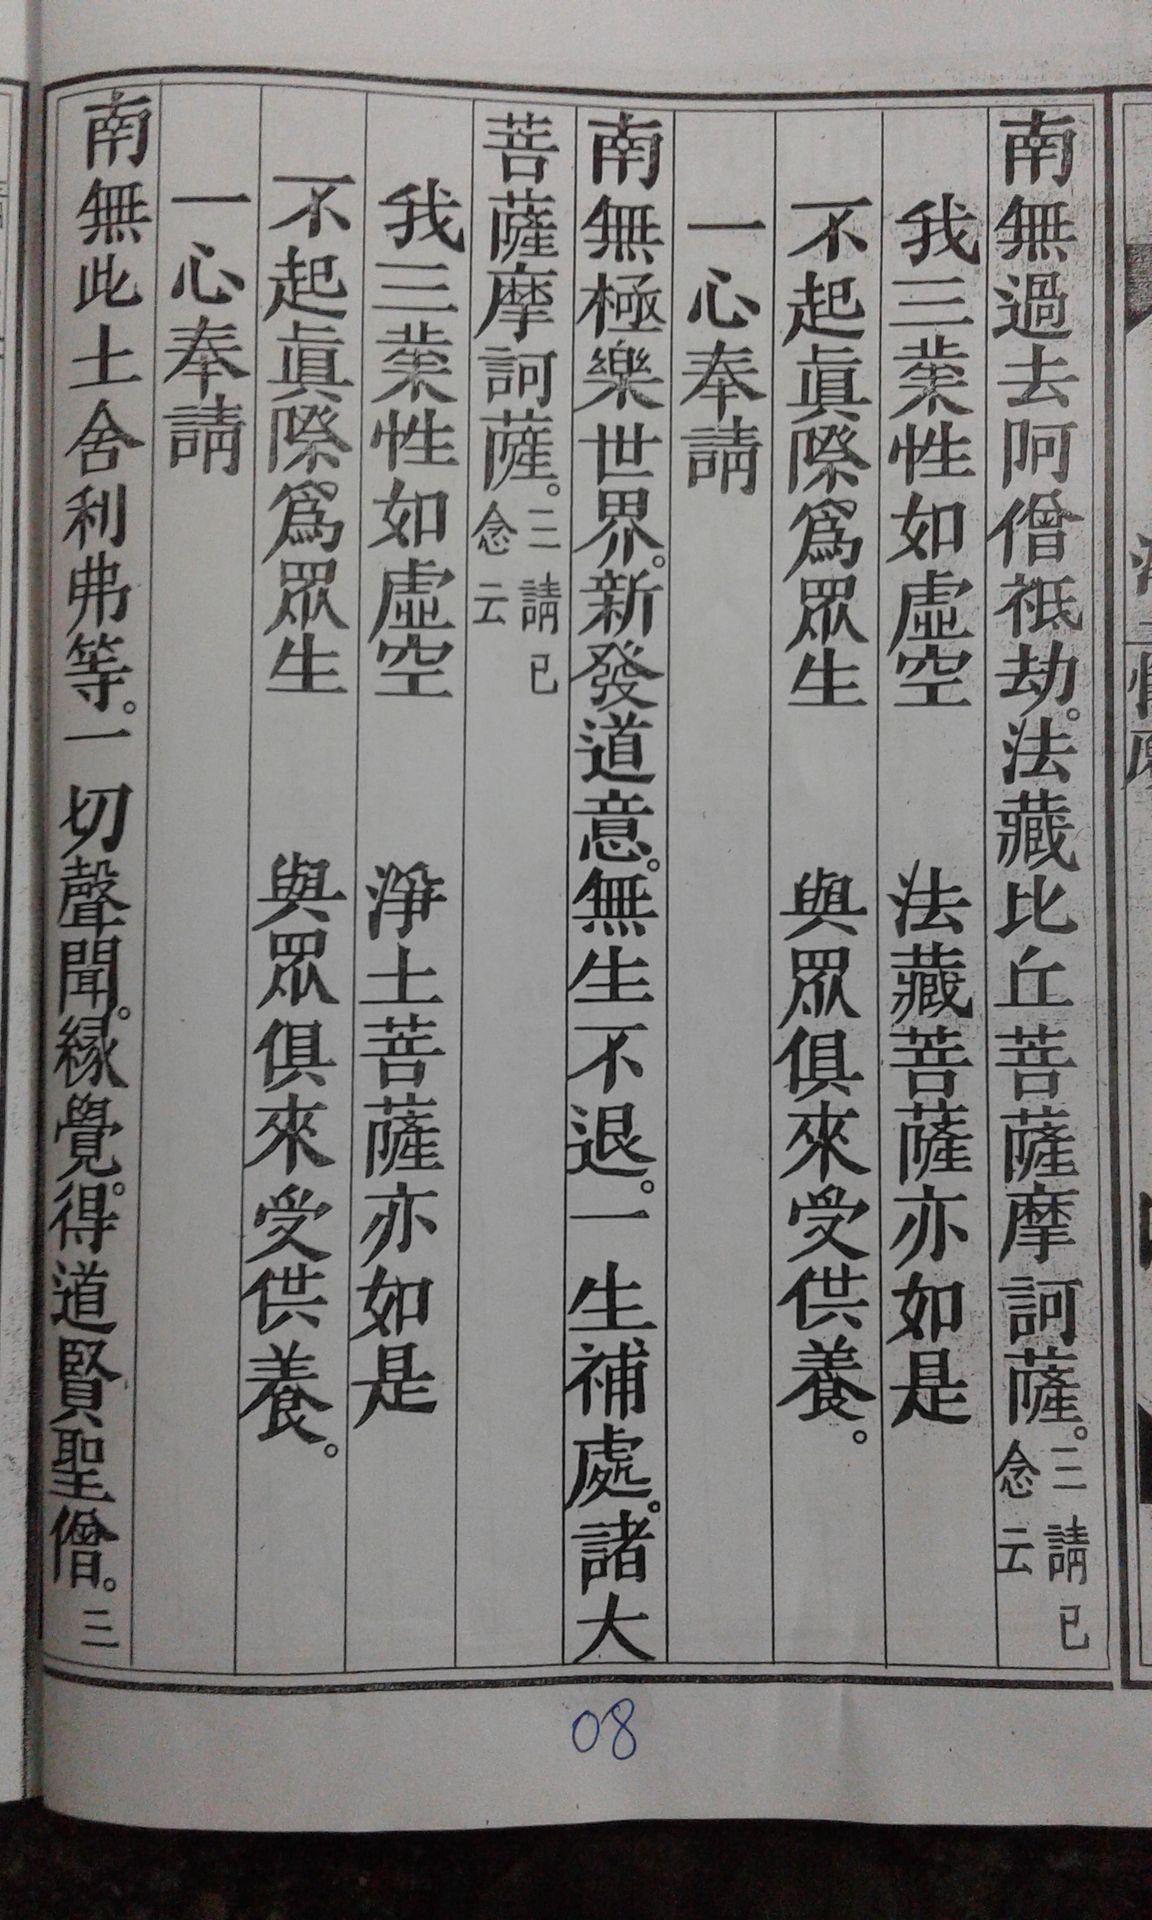 南無過去阿僧祇劫。法藏比丘菩薩摩訶薩。三請已念云
我三業性如虛空 法藏菩薩亦如是
不起眞際爲眾生 與眾俱來受供養。
一心奉請
南無極樂世界。新發道意。無生不退。一生補處。諸大
菩薩摩訶薩。三請已念云
我三業性如虛空 淨土菩薩亦如是
不起眞際爲眾生 與眾俱來受供養。
一心奉請
南無此土舍利弗等。一切聲聞。緣覺。得道賢聖僧。三
08